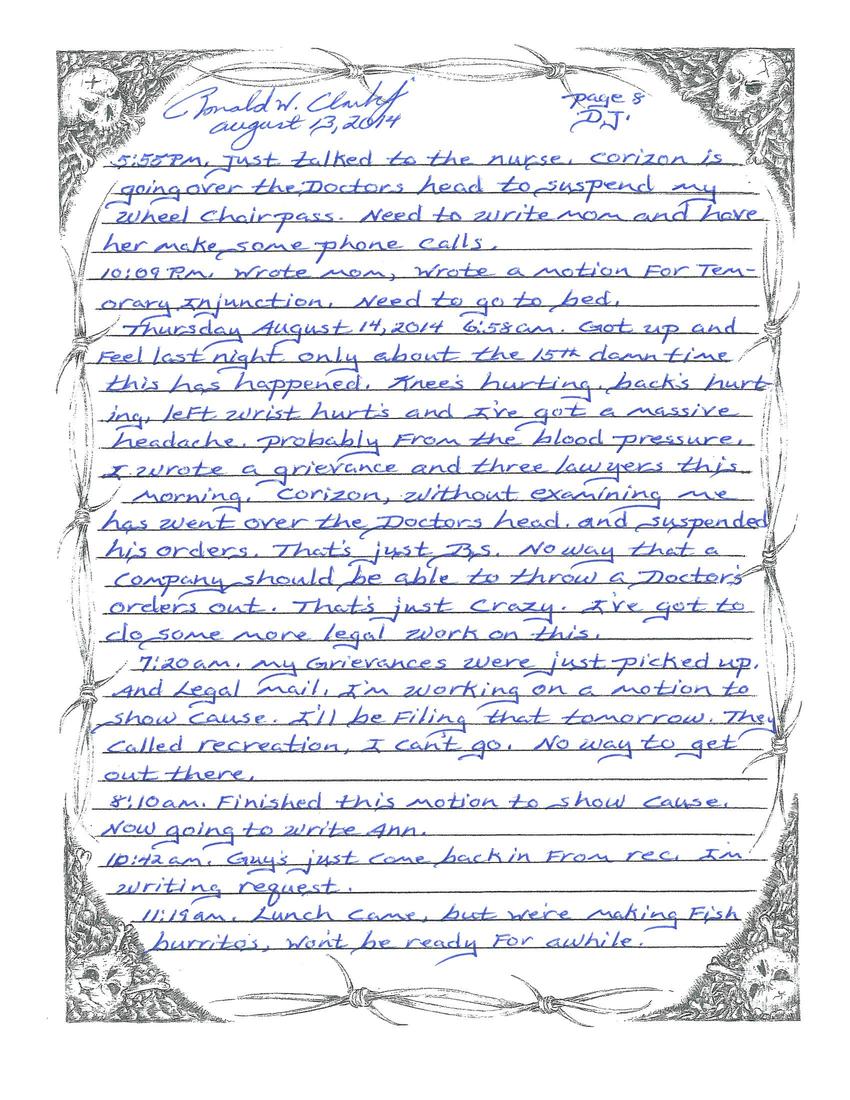 Ronald W. Clark Jr
page 8
August 13, 2014
D.J.
5:55 PM. Just talked to the nurse. Corizon is
going over the Doctors head to suspend my
Wheel Chair pass. Need to write mom and have
her make some phone calls.
10:09 PM. Wrote mom, Wrote a motion For Tem-
orary Injunction. Need to go to bed.
Thursday August 14, 2014 6:58 am. Got up and
Feel last night only about the 15th damn time
this has happened. Knee's hurting. back's hurt-
ing, left wrist hurt's and I've got a massive
headache. Probably From the blood pressure.
I wrote a grievance and three lawyers this
morning. Corizon, without examining me
has went over the Doctors head. and suspended
his orders. That's just B.s. No way that a
Company should be able to throw a Doctor's
orders out. That's just Crazy. I've got to
do some more legal work on this.
7:20 am. My Grievances were just picked up.
And Legal mail. I'm working on a motion to
show Cause. I'll be Filing that tomorrow. They
Called recreation, I can't go. No way to get
out there.
8:10 am. Finished this motion to show Cause.
Now going to write Ann.
10:42 am. Guy's just come back in From rec. I'm
writing request.
11:19 am. Lunch Came, but we're making Fish
burritos, won't be ready For awhile.